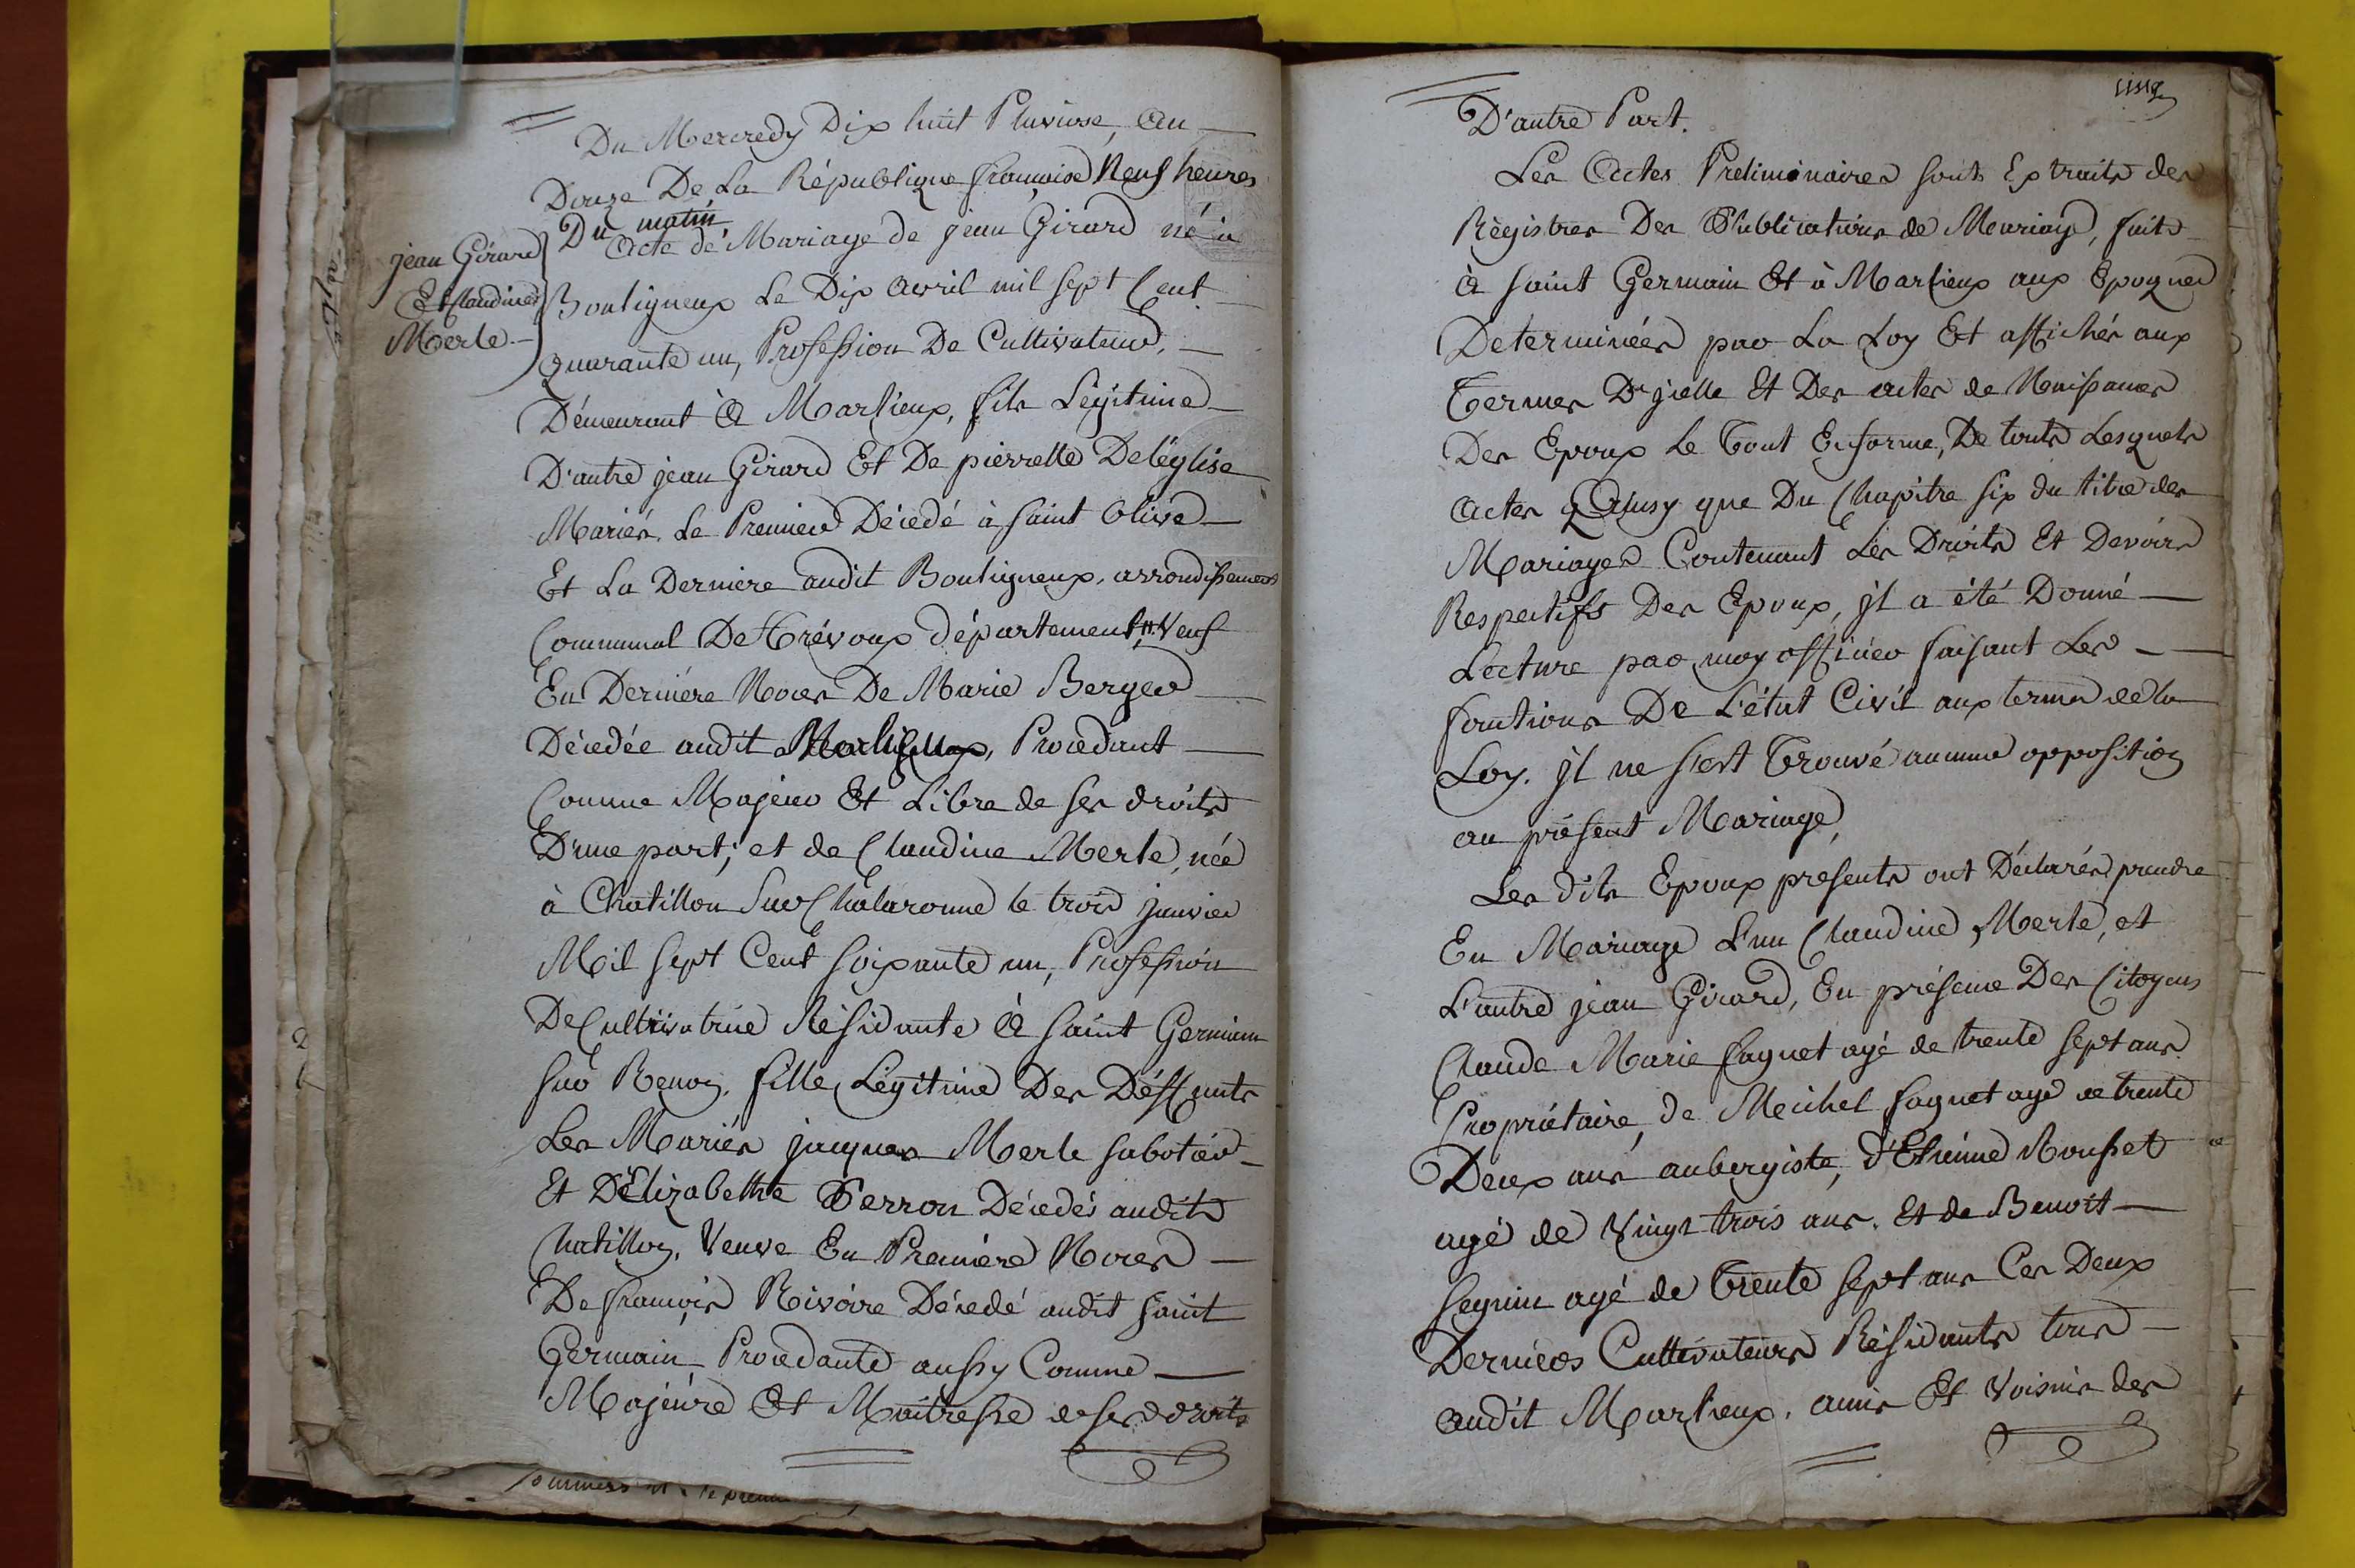 Du Mercredy Dix huit Pluviose, an
Douze De La République françoise Neuf heures
Du matin
jean Girard
Et Claudine
Merle
Acte de Mariage de jean Girard né à
Bouligneux Le Dix avril mil sept Cent
quarante un, Profession De Cultivateur,
Démeurant à Marlieux, fils Légitime
D'autre jean Girard Et De pierrette Deléglise
Mariés. Le Premier Décedé à saint Olive
Et La Derniere audit Bouligneux, arrondissement
Communal De Trévoux département, Veuf
En Derniére Noces De Marie Berger
Décedée audit Marlieux, Procedant
Comme Majeur Et Libre de ses droits
D'une part; et de Claudine Merle, née
à Chatillon Sur Chalaronne le trois janvier
Mil sept Cent soixante un, Profession
De Cultivatrice Résidante à saint Germain
sur Renon, fille Légitime Des Deffunts
Les Mariés jacques Merle sabotier
Et D'Elizabethe Perron Décedés audit
Chatillon, Veuve En Premiére Noces
De françois Rivoire Décedé audit saint
Germain Procedante aussy Comme
Majeure Et Maitresse de ses droits
D'autre Part.
Les Actes Preliminaires sont Extraits des
Régistres Des Publications de Mariage, faits
à saint Germain Et à Marlieux aux Epoques
Determinées par La Loy Et affichés aux
Termes D'jcelle Et Des actes de Naissances
Des Epoux Le Tout En forme, De touts Lesquels
Actes Ainsy que Du Chapitre six du titre des
Mariages Contenant Les Droits Et Devoirs
Respectifs Des Epoux, jl a été Donné
Lecture par moy officier faisant Les
fonctions De L'état Civil aux termes de la
Loy. jl ne s'est Trouvé aucune opposition
au présent Mariage,
Les dits Epoux presents ont Déclarés prendre
En Mariage L'un Claudine Merle, et
L'autre jean Girard, En présence Des Citoyens
Claude Marie faguet agé de trente sept ans
Propriétaire, de Meichel faguet agé de trente
Deux ans aubergiste, d'Etienne Rousset
agé de Vingt trois ans. Et de Benoit
seguin agé de Trente sept ans Ces Deux
Derniers Cultivateurs Résidants tous
audit Marlieux, amis Et Voisins des